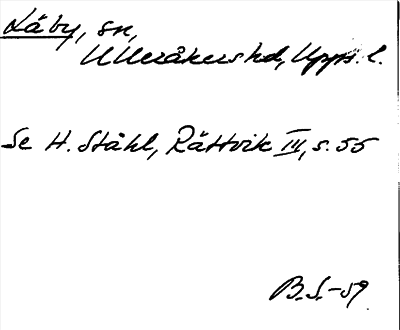 Läby, sn,
Ulleråkers hd, Upps. l.
Se H. Ståhl, Rättvik III, s. 55
B.S.-59